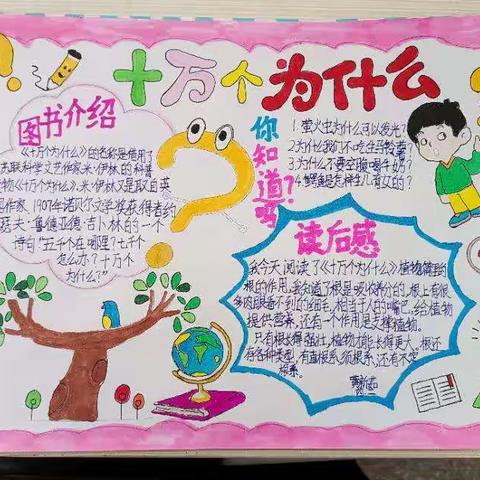 十万个为什么
图书介绍
《十万个为什么》的名称是借用了
苏联科学文艺作家米·伊林的科普
读物《十万个为什么》.米·伊林又是取自英
国作家1907年诺贝尔文学奖获得者约
瑟夫·鲁德亚德·吉卜林的一个
诗句"五千个在哪里?七千个
怎么办?十万个
为什么?"
你知道吗?
1 萤火虫为什么可以发光?
2 为什么我们不吃生野菜?
3 为什么不要空腹喝牛奶?
4 鳄鱼是怎样生儿育女的?
读后感
我今天阅读了《十万个为什么》植物篇里的
根的作用,我知道了根是吸收养分的,根上有很
多肉眼看不到的细毛,相当于人的嘴巴,给植物
提供营养,还有一个作用是支撑植物。
只有根长得强壮,植物才能长得更大。根还
有各种类型,有直根系,须根系,还有不定
根系。